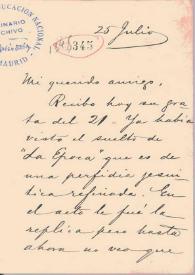 EDUCACION NACIONAL
MADRID
345
25 Julio
Mi querido amigo,
Recibo hoy su gra
ta del 21 - Ya habia
visto el suelto de
"La Epoca" que es de
una perfidia jesui
tica refinada. En
el acto le fué la
replica pero hasta
ahora no veo que